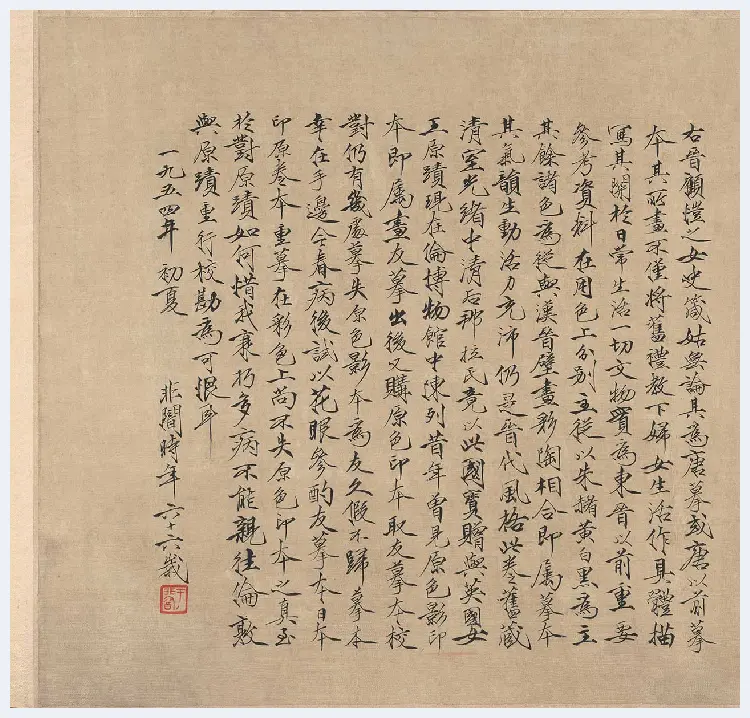 右晉顧愷之女史箴姑無論其為唐摹或唐以前摹
本其所畫不僅將舊禮教下婦女生活作具體描
寫其關於日常生活一切文物實為東晉以前重要
參考資料在用色上分別主從以朱赭黃白黑為主
其餘諸色為從與漢晉壁畫彩陶相合即屬摹本
其氣韻生動活力充沛仍是晉代風格此卷舊藏
清室光緒中清后那拉氏竟以此國寶贈與英國女
王原蹟現在倫博物館中陳列昔年曾見原色影印
本即屬畫友摹出後又購原色印本取友摹本校
對仍有幾處摹失原色影本為友久假不歸摹本
幸在手邊今春病後試以花眼參酌友摹本日本
印原卷本重摹在彩色上尚不失原色印本之真至
於對原蹟如何惜我衰朽多病不能親往倫敦
與原蹟重行校勘為可恨耳
一九五四年初夏 非闇時年六十六歲